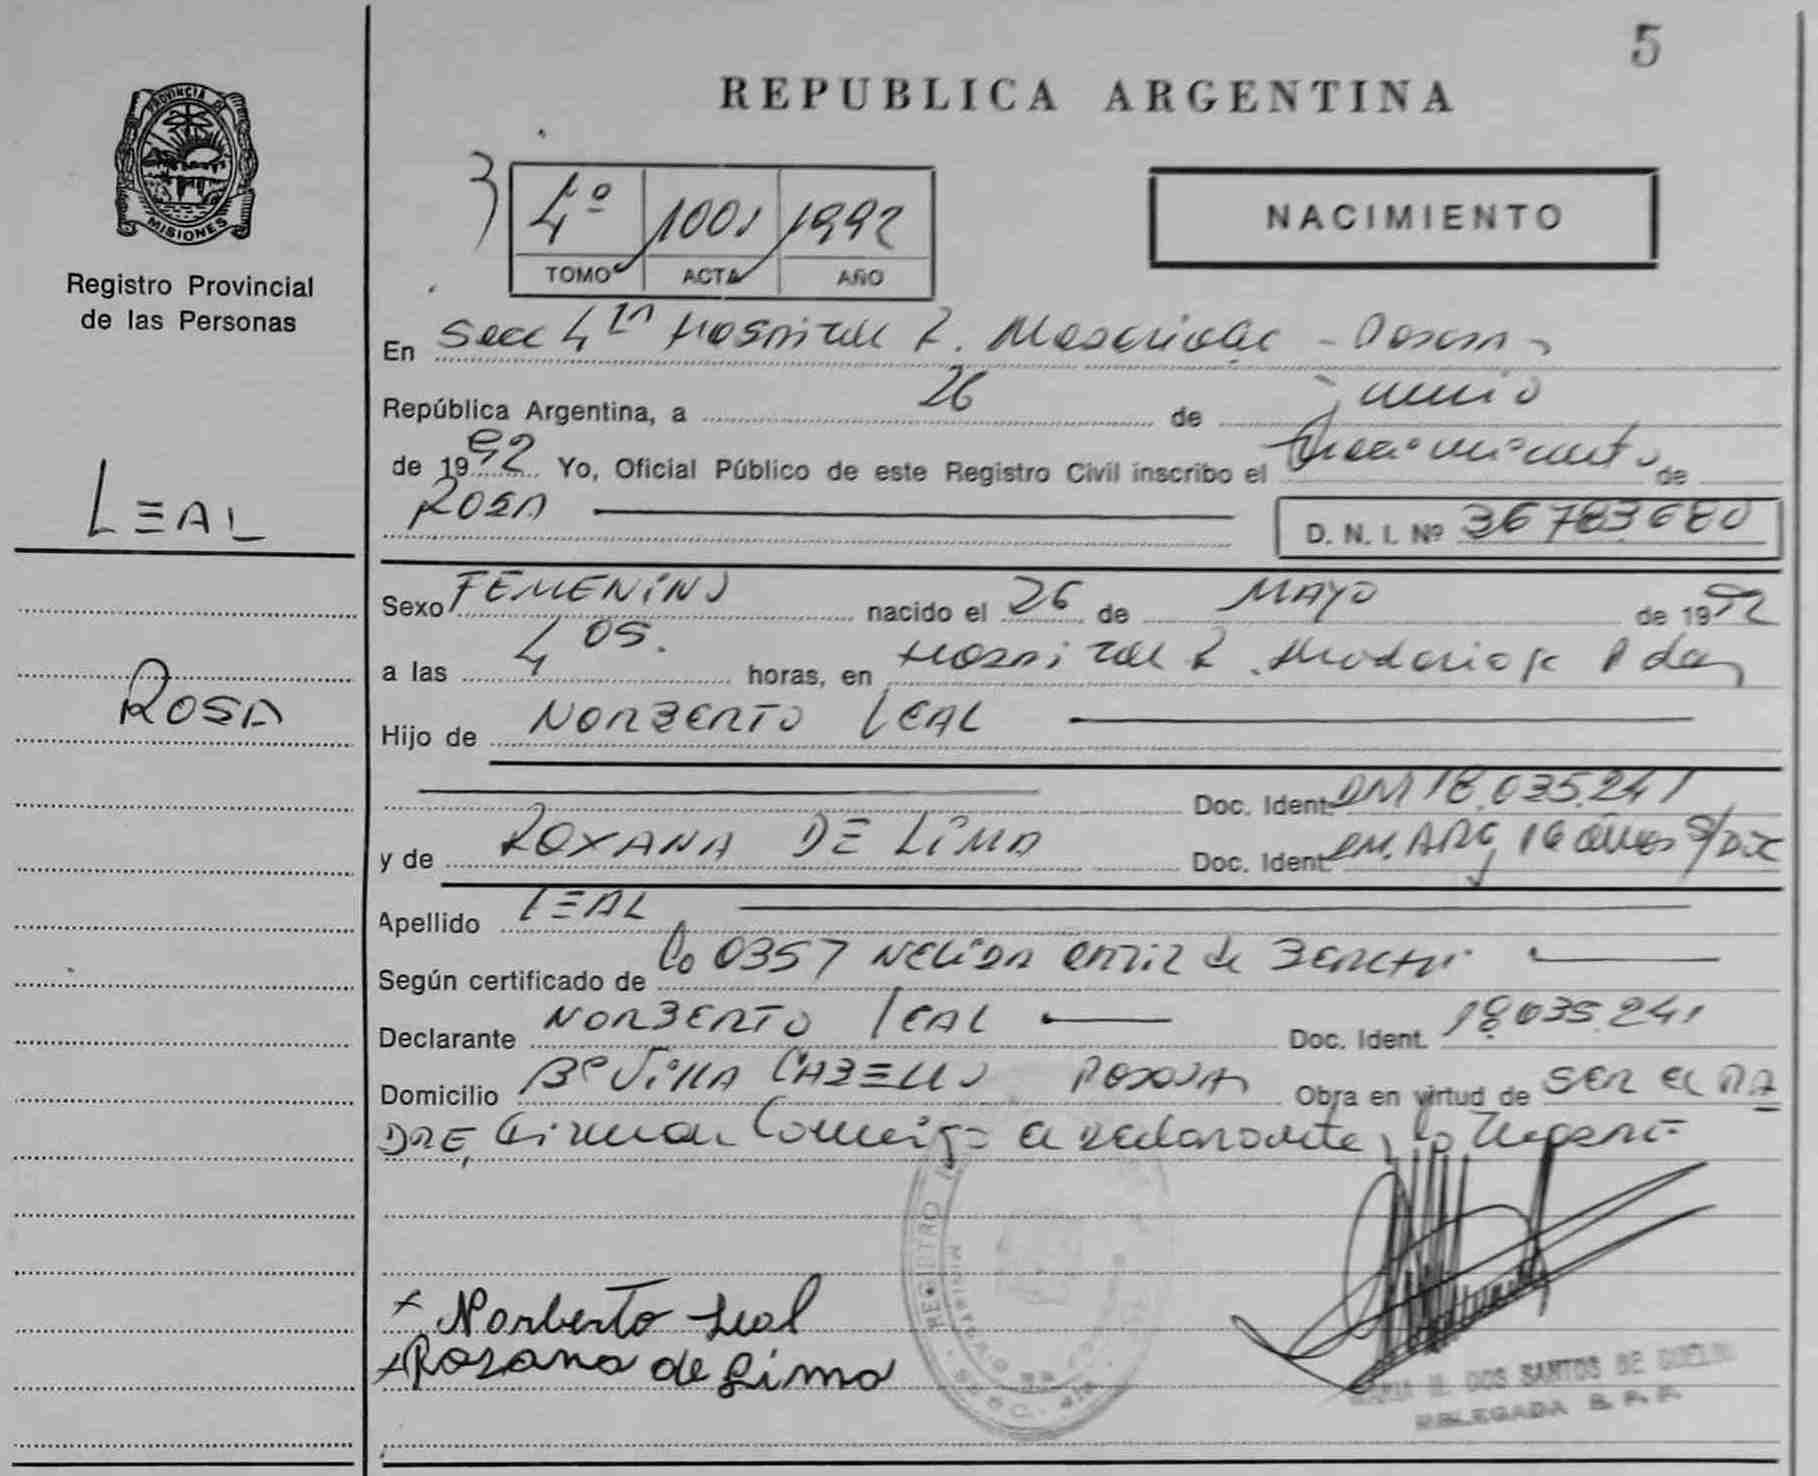 5
REPUBLICA ARGENTINA
PROVINCIA DE
MISIONES
Registro Provincial
de las Personas
4º 1001 1992
TOMO ACTA AÑO
NACIMIENTO
En Secc 4ta Hospital R. Madariaga - Posadas
República Argentina, a 26 de Junio
de 1992 Yo, Oficial Público de este Registro Civil inscribo el Nacimiento de
ROSA
D. N. I. Nº 36783680
LEAL
ROSA
Sexo FEMENINO nacido el 26 de MAYO de 1992
a las 4 05. horas, en Hospital R. Madariaga Pdas
Hijo de NORBERTO LEAL
Doc. Ident. DNI 18.035.241
y de ROXANA DE LIMA Doc. Ident. ARG 16 años S/Doc
Apellido LEAL
Según certificado de 0357 NELIDA de
Declarante NORBERTO LEAL Doc. Ident. 18.035.241
Domicilio Bº VILLA CABELLO POSADAS Obra en virtud de SER EL PA
DRE, Firman Conmigo el declarante y
x Norberto Leal
x Roxana de Lima
REGISTRO
DOS SANTOS DE
DELEGADA R. P. P.